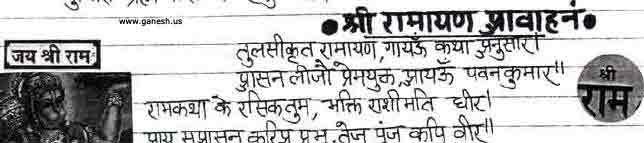 www.ganesh.us
• श्री रामायण आवाहनं •
जय श्री राम
तुलसीकृत रामायण, गायऊँ कथा अनुसार।
आसन लीजौ प्रेमयुक्त, आयऊँ पवनकुमार॥
श्री
राम
रामकथा के रसिकतुम, भक्ति राशीमति धीर।
तेज पुंज कपि वीर॥